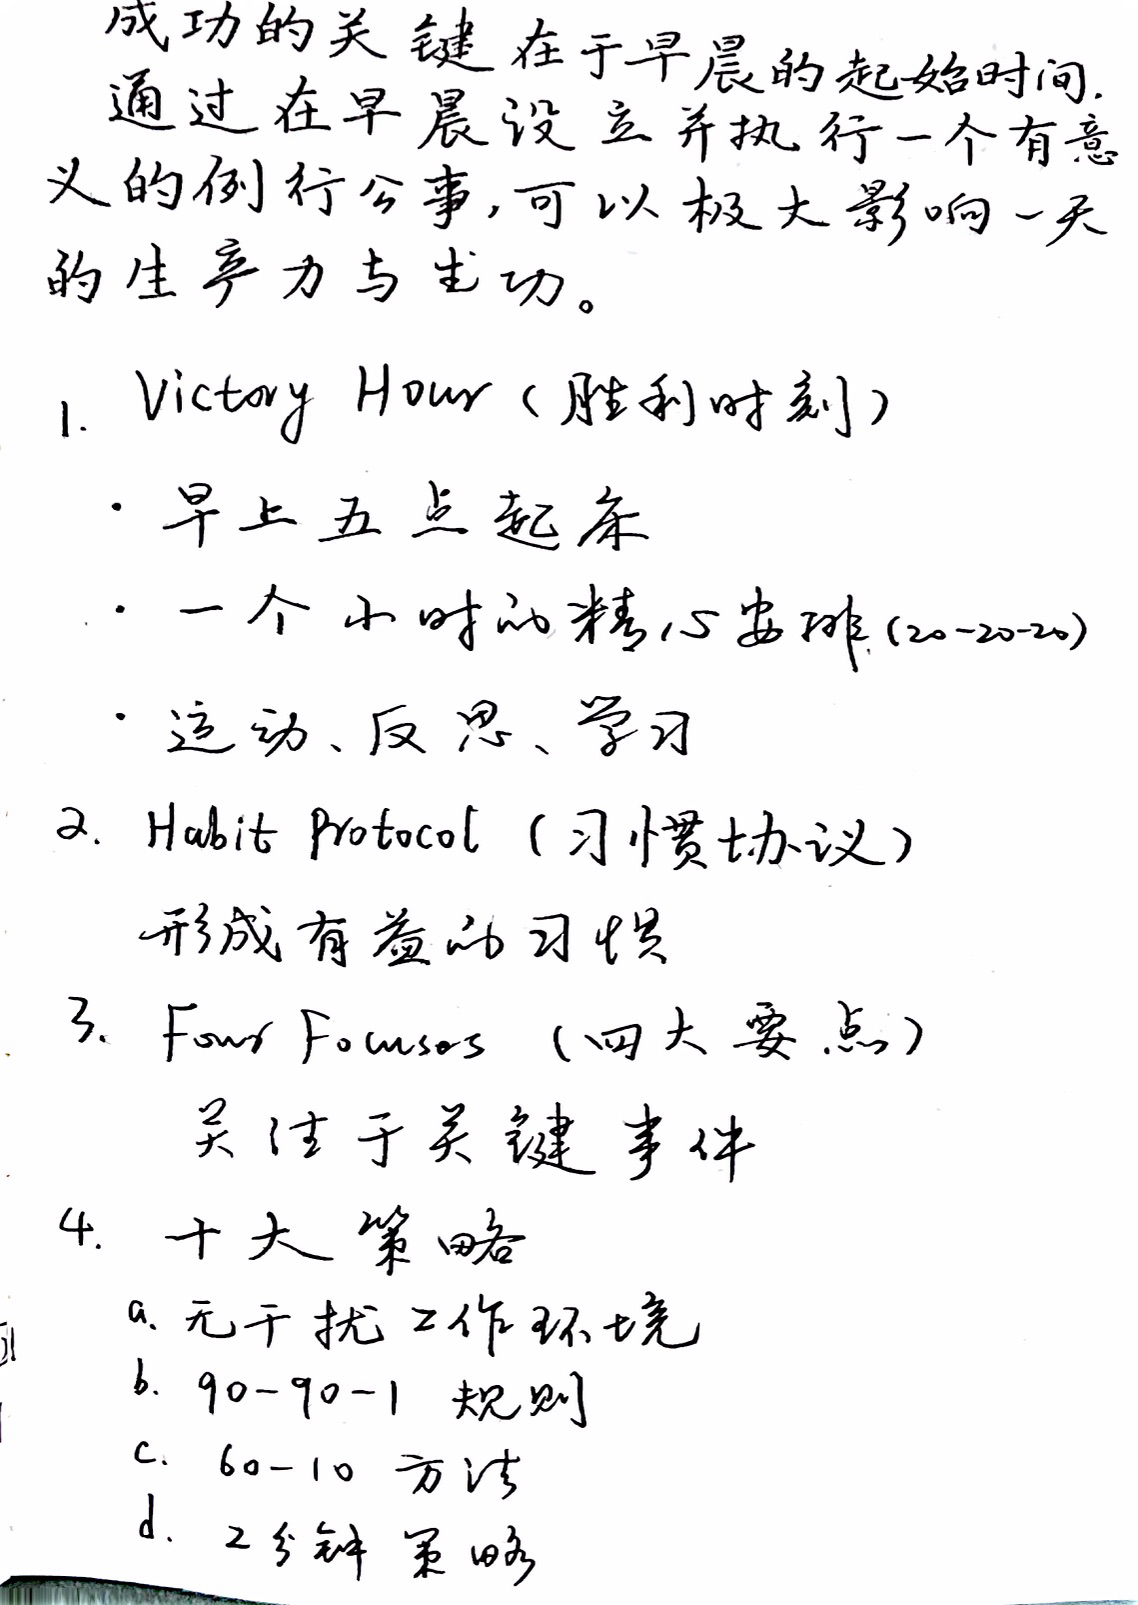 成功的关键在于早晨的起始时间.
通过在早晨设立并执行一个有意
义的例行公事,可以极大影响一天
的生产力与成功。
1. Victory Hour (胜利时刻)
· 早上五点起床
· 一个小时的精心安排 (20-20-20)
· 运动、反思、学习
2. Habit Protocol (习惯协议)
形成有益的习惯
3. Four Focuses (四大要点)
关注于关键事件
4. 十大策略
a. 无干扰工作环境
b. 90-90-1 规则
c. 60-10 方法
d. 2分钟策略